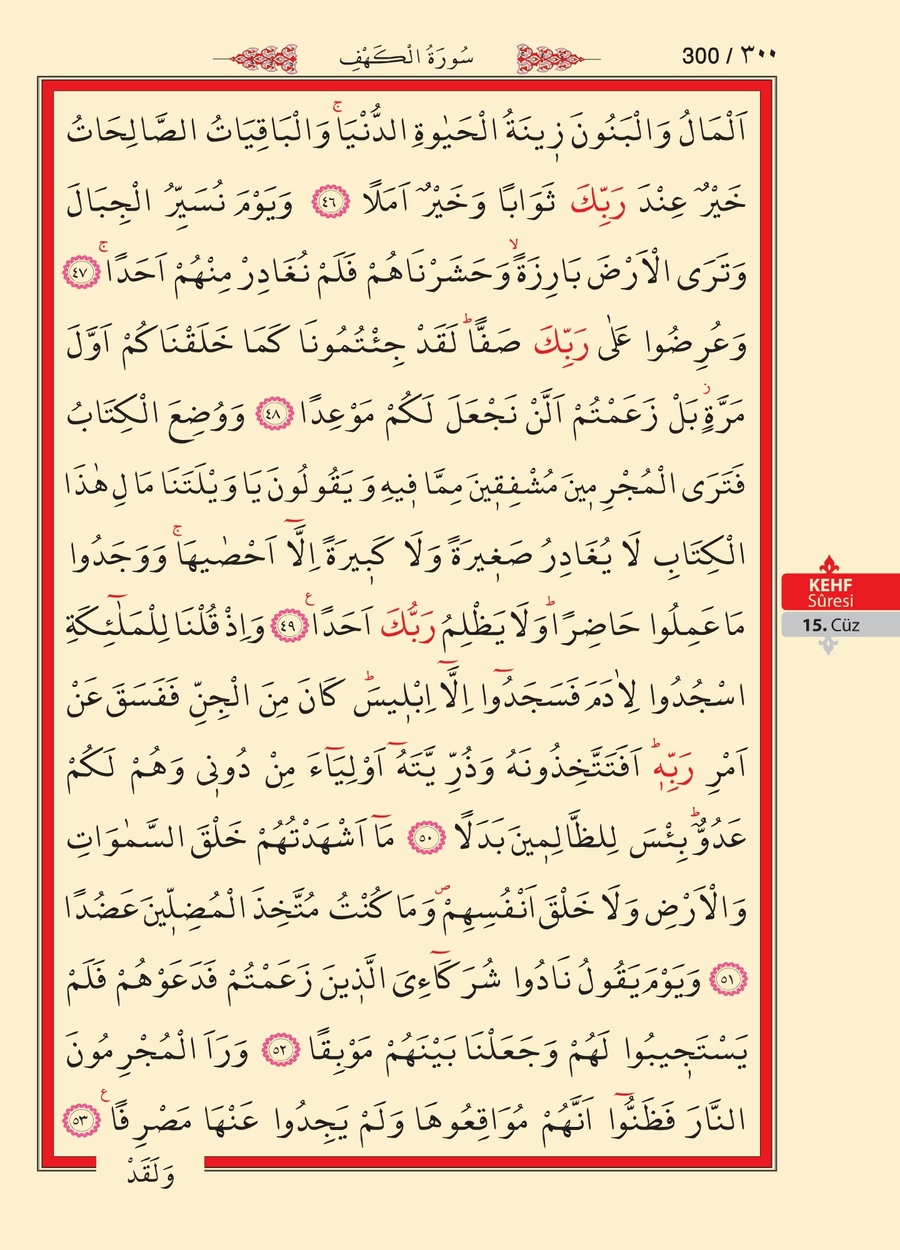 300 / ٣٠٠
سُورَةُ الْكَهْفِ
اَلْمَالُ وَالْبَنُونَ زِينَةُ الْحَيٰوةِ الدُّنْيَاۚ وَالْبَاقِيَاتُ الصَّالِحَاتُ
خَيْرٌ عِنْدَ رَبِّكَ ثَوَابًا وَخَيْرٌ اَمَلًا ﴿٤٦﴾ وَيَوْمَ نُسَيِّرُ الْجِبَالَ
وَتَرَى الْاَرْضَ بَارِزَةًۙ وَحَشَرْنَاهُمْ فَلَمْ نُغَادِرْ مِنْهُمْ اَحَدًاۚ ﴿٤٧﴾
وَعُرِضُوا عَلٰى رَبِّكَ صَفًّاؕ لَقَدْ جِئْتُمُونَا كَمَا خَلَقْنَاكُمْ اَوَّلَ
مَرَّةٍؗ بَلْ زَعَمْتُمْ اَلَّنْ نَجْعَلَ لَكُمْ مَوْعِدًا ﴿٤٨﴾ وَوُضِعَ الْكِتَابُ
فَتَرَى الْمُجْرِمٖينَ مُشْفِقٖينَ مِمَّا فٖيهِ وَيَقُولُونَ يَا وَيْلَتَنَا مَا لِ هٰذَا
الْكِتَابِ لَا يُغَادِرُ صَغٖيرَةً وَلَا كَبٖيرَةً اِلَّٓا اَحْصٰيهَاۚ وَوَجَدُوا
مَا عَمِلُوا حَاضِرًاؕ وَلَا يَظْلِمُ رَبُّكَ اَحَدًاࣖ ﴿٤٩﴾ وَاِذْ قُلْنَا لِلْمَلٰٓئِكَةِ
اسْجُدُوا لِاٰدَمَ فَسَجَدُٓوا اِلَّٓا اِبْلٖيسَؕ كَانَ مِنَ الْجِنِّ فَفَسَقَ عَنْ
اَمْرِ رَبِّهٖؕ اَفَتَتَّخِذُونَهُ وَذُرِّيَّتَهُٓ اَوْلِيَٓاءَ مِنْ دُونٖى وَهُمْ لَكُمْ
عَدُوٌّؕ بِئْسَ لِلظَّالِمٖينَ بَدَلًا ﴿٥٠﴾ مَٓا اَشْهَدْتُهُمْ خَلْقَ السَّمٰوَاتِ
وَالْاَرْضِ وَلَا خَلْقَ اَنْفُسِهِمْࣕ وَمَا كُنْتُ مُتَّخِذَ الْمُضِلّٖينَ عَضُدًا
﴿٥١﴾ وَيَوْمَ يَقُولُ نَادُوا شُرَكَٓاءِىَ الَّذٖينَ زَعَمْتُمْ فَدَعَوْهُمْ فَلَمْ
يَسْتَجٖيبُوا لَهُمْ وَجَعَلْنَا بَيْنَهُمْ مَوْبِقًا ﴿٥٢﴾ وَرَاَ الْمُجْرِمُونَ
النَّارَ فَظَنُّٓوا اَنَّهُمْ مُوَاقِعُوهَا وَلَمْ يَجِدُوا عَنْهَا مَصْرِفًاࣖ ﴿٥٣﴾
وَلَقَدْ
KEHF
Sûresi
15. Cüz